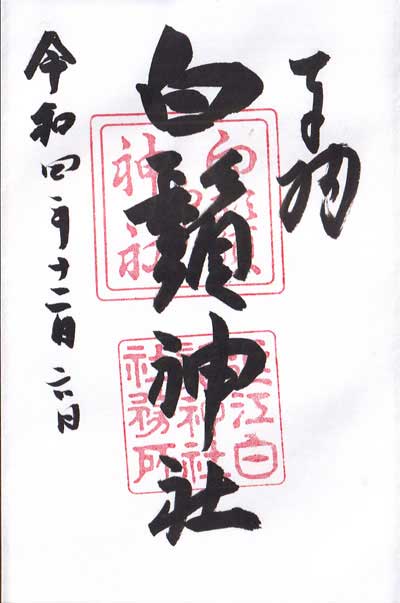 奉拝
白鬚神社
令和四年十二月六日
白鬚
神社
近江白
鬚神社
社務所